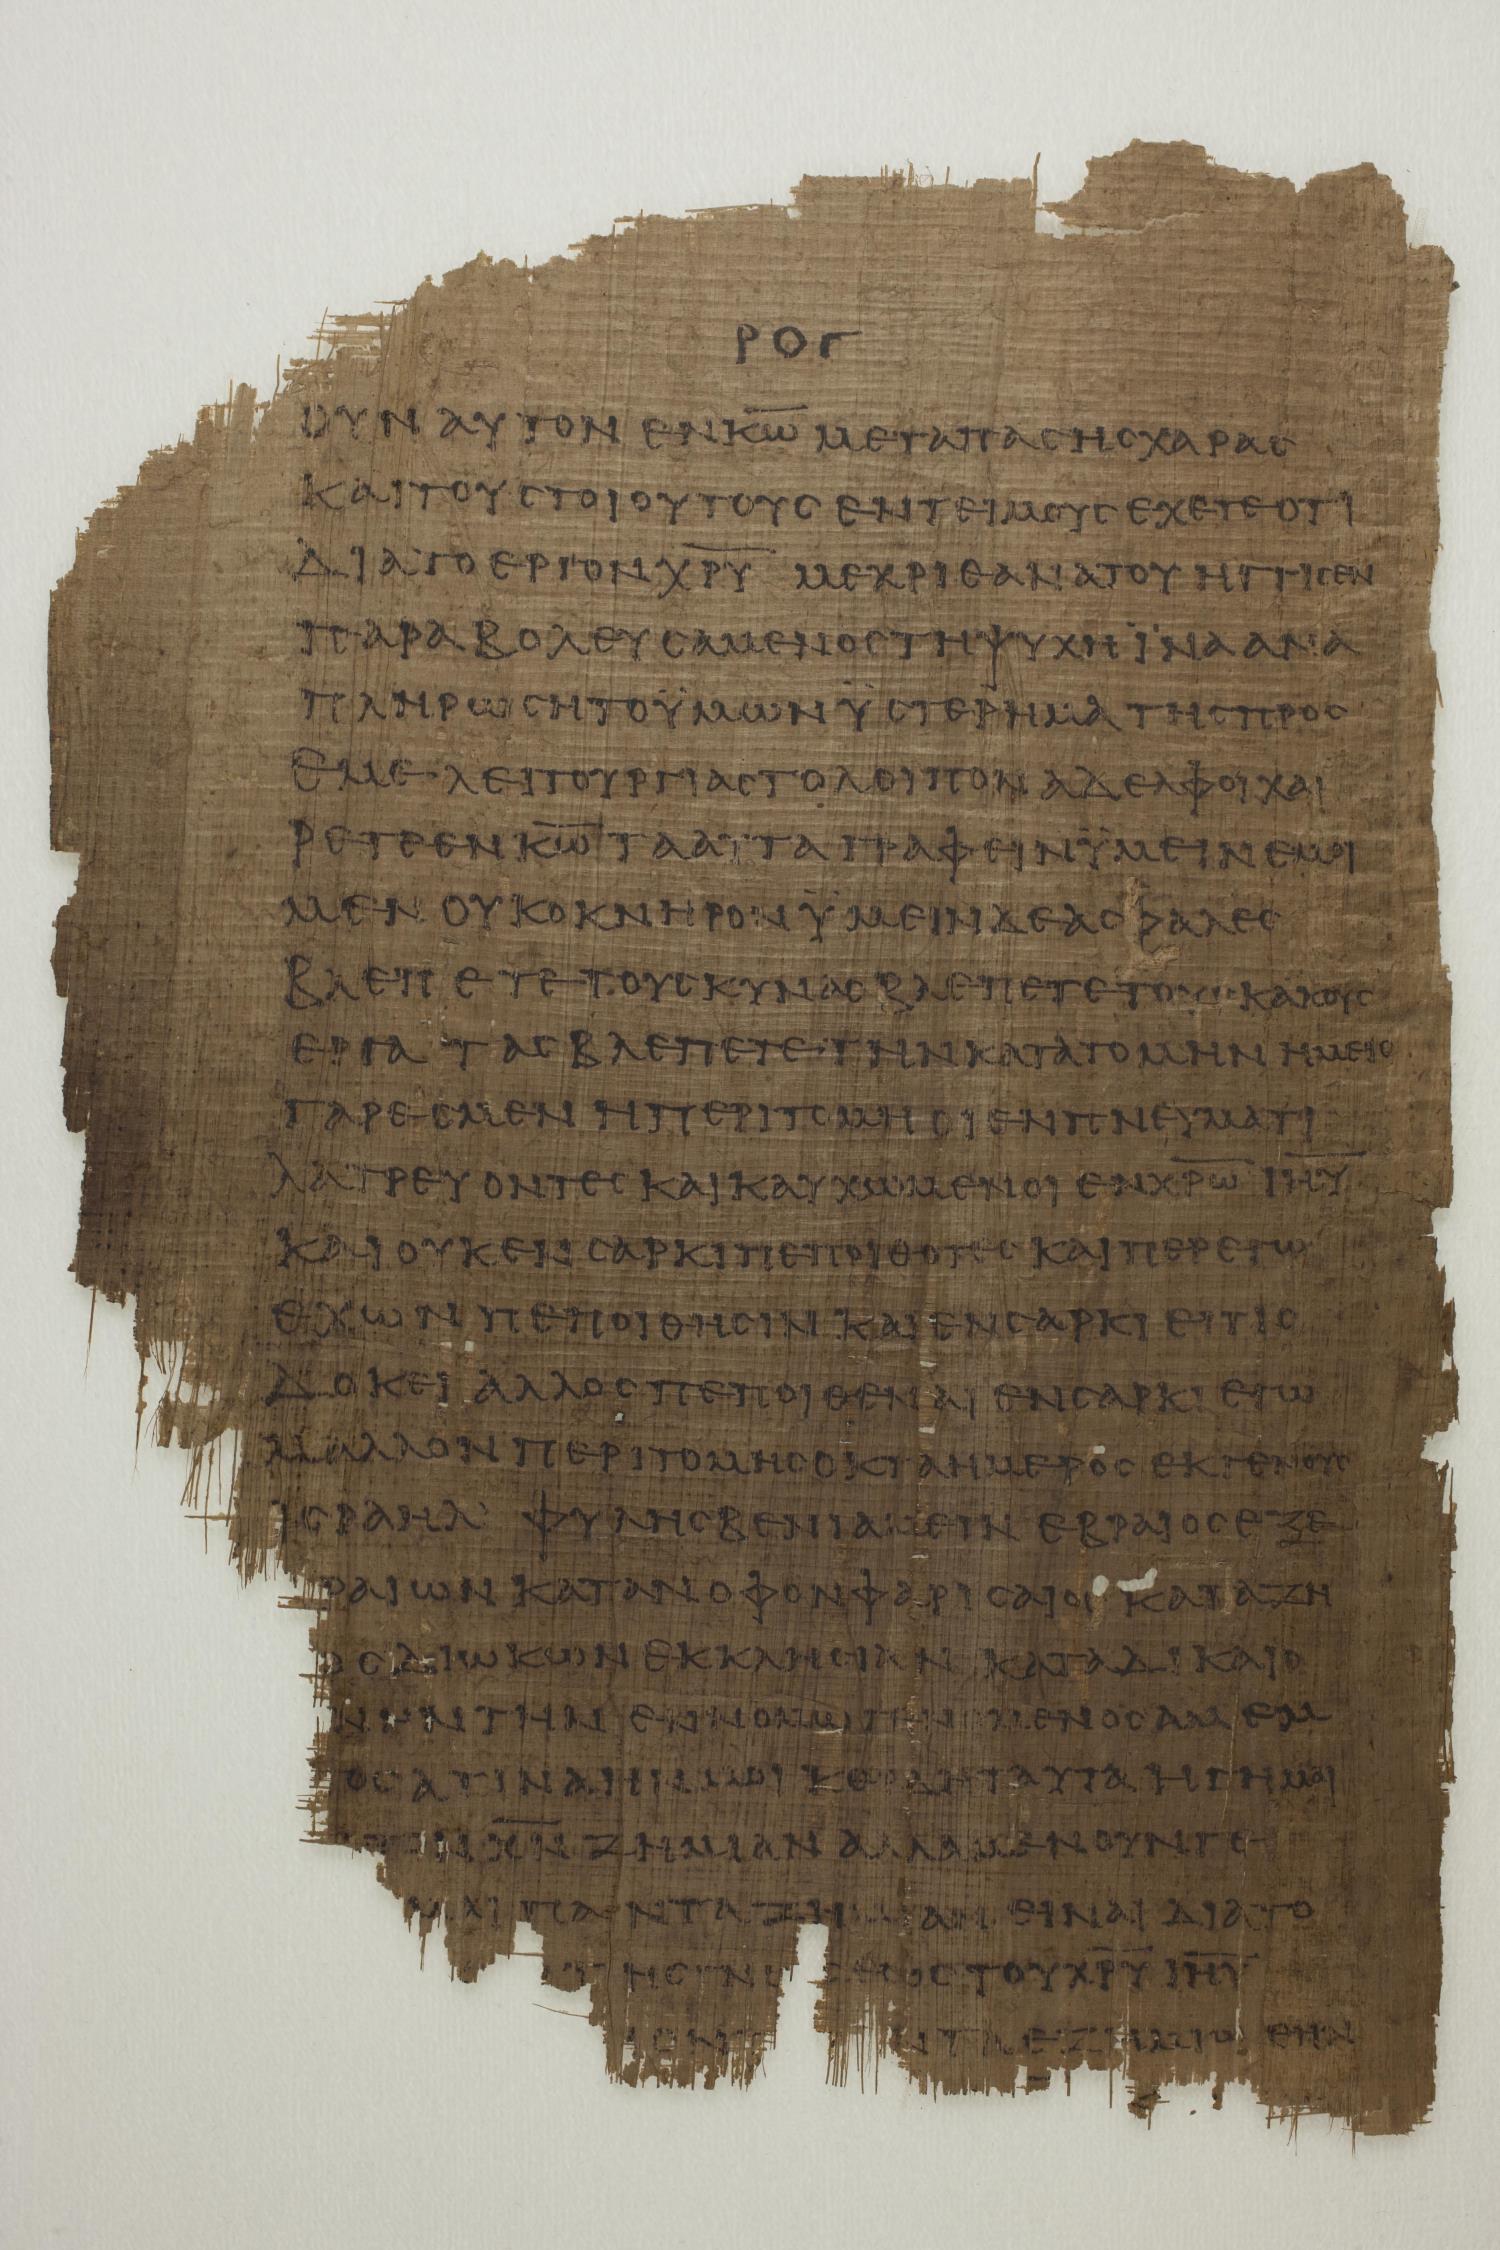 ΡΟΓ
ΟΥΝ ΑΥΤΟΝ ΕΝ Κ̅Ω̅ ΜΕΤΑ ΠΑΣΗΣ ΧΑΡΑΣ
ΚΑΙ ΤΟΥΣ ΤΟΙΟΥΤΟΥΣ ΕΝΤΕΙΜΟΥΣ ΕΧΕΤΕ ΟΤΙ
ΔΙΑ ΤΟ ΕΡΓΟΝ Χ̅Ρ̅Υ̅ ΜΕΧΡΙ ΘΑΝΑΤΟΥ ΗΓΓΙΣΕΝ
ΠΑΡΑΒΟΛΕΥΣΑΜΕΝΟΣ ΤΗ ΨΥΧΗ ΪΝΑ ΑΝΑ
ΠΛΗΡΩΣΗ ΤΟ ΫΜΩΝ ΫΣΤΕΡΗΜΑ ΤΗΣ ΠΡΟΣ
ΕΜΕ ΛΕΙΤΟΥΡΓΙΑΣ ΤΟ ΛΟΙΠΟΝ ΑΔΕΛΦΟΙ ΧΑΙ
ΡΕΤΕ ΕΝ Κ̅Ω̅ ΤΑ ΑΥΤΑ ΓΡΑΦΕΙΝ ΫΜΕΙΝ ΕΜΟΙ
ΜΕΝ ΟΥΚ ΟΚΝΗΡΟΝ ΫΜΕΙΝ ΔΕ ΑΣΦΑΛΕΣ
ΒΛΕΠΕΤΕ ΤΟΥΣ ΚΥΝΑΣ ΒΛΕΠΕΤΕ ΤΟΥΣ ΚΑΚΟΥΣ
ΕΡΓΑΤΑΣ ΒΛΕΠΕΤΕ ΤΗΝ ΚΑΤΑΤΟΜΗΝ ΗΜΕΙΣ
ΓΑΡ ΕΣΜΕΝ Η ΠΕΡΙΤΟΜΗ ΟΙ ΕΝ ΠΝΕΥΜΑΤΙ
ΛΑΤΡΕΥΟΝΤΕΣ ΚΑΙ ΚΑΥΧΩΜΕΝΟΙ ΕΝ Χ̅Ρ̅Ω̅ Ι̅Η̅Υ̅
ΚΑΙ ΟΥΚ ΕΝ ΣΑΡΚΙ ΠΕΠΟΙΘΟΤΕΣ ΚΑΙΠΕΡ ΕΓΩ
ΕΧΩΝ ΠΕΠΟΙΘΗΣΙΝ ΚΑΙ ΕΝ ΣΑΡΚΙ ΕΙ ΤΙΣ
ΔΟΚΕΙ ΑΛΛΟΣ ΠΕΠΟΙΘΕΝΑΙ ΕΝ ΣΑΡΚΙ ΕΓΩ
ΜΑΛΛΟΝ ΠΕΡΙΤΟΜΗΣ ΟΚΤΑΗΜΕΡΟΣ ΕΚ ΓΕΝΟΥΣ
ΙΣΡΑΗΛ ΦΥΛΗΣ ΒΕΝΙΑΜΕΙΝ ΕΒΡΑΙΟΣ ΕΞ Ε
ΡΑΙΩΝ ΚΑΤΑ ΝΟΦΟΝ ΦΑΡΙΣΑΙΟΣ ΚΑΤΑ ΖΗ
ΟΣ ΔΙΩΚΩΝ ΕΚΚΛΗΣΙΑΝ ΚΑΤΑ ΔΙΚΑΙΟ
ΝΗΝ ΤΗΝ ΕΝ ΝΟΜΩ ΓΕΝΟΜΕΝΟΣ ΑΜΕΜ
ΤΟΣ ΑΤΙΝΑ ΗΝ ΜΟΙ ΚΕΡΔΗ ΤΑΥΤΑ ΗΓΗΜΑΙ
ΤΟΝ Χ̅Ν̅ ΖΗΜΙΑΝ ΑΛΛΑ ΜΕΝΟΥΝΓΕ
ΜΑΙ ΠΑΝΤΑ ΖΗΜΙΑΝ ΕΙΝΑΙ ΔΙΑ ΤΟ
ΤΗΣ ΓΝΩΣΕΩΣ ΤΟΥ Χ̅Ρ̅Υ̅ Ι̅Η̅Υ̅
ΟΝ ΤΑ ΠΑΝΤΑ ΕΖΗΜΙΩΘΗΝ